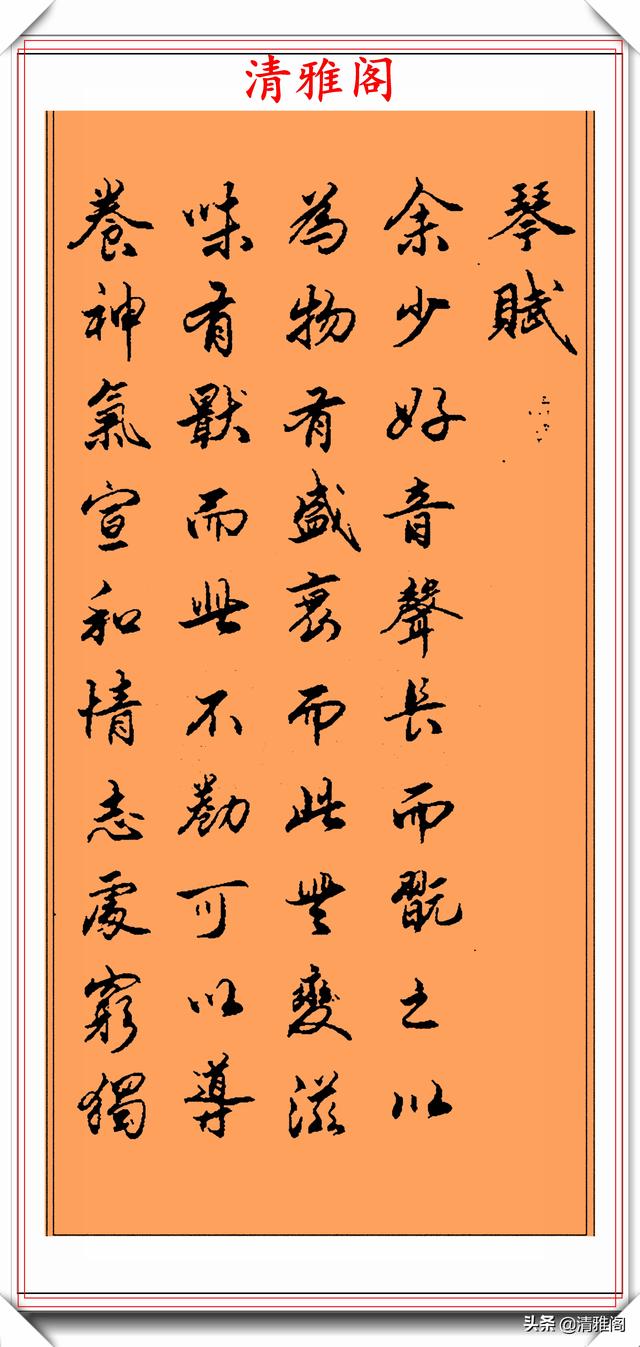 清雅阁
琴賦
余少好音聲長而翫之以
為物有盛衰而此無變滋
味有猒而此不勌可以導
養神氣宣和情志處窮獨
头条 @清雅阁